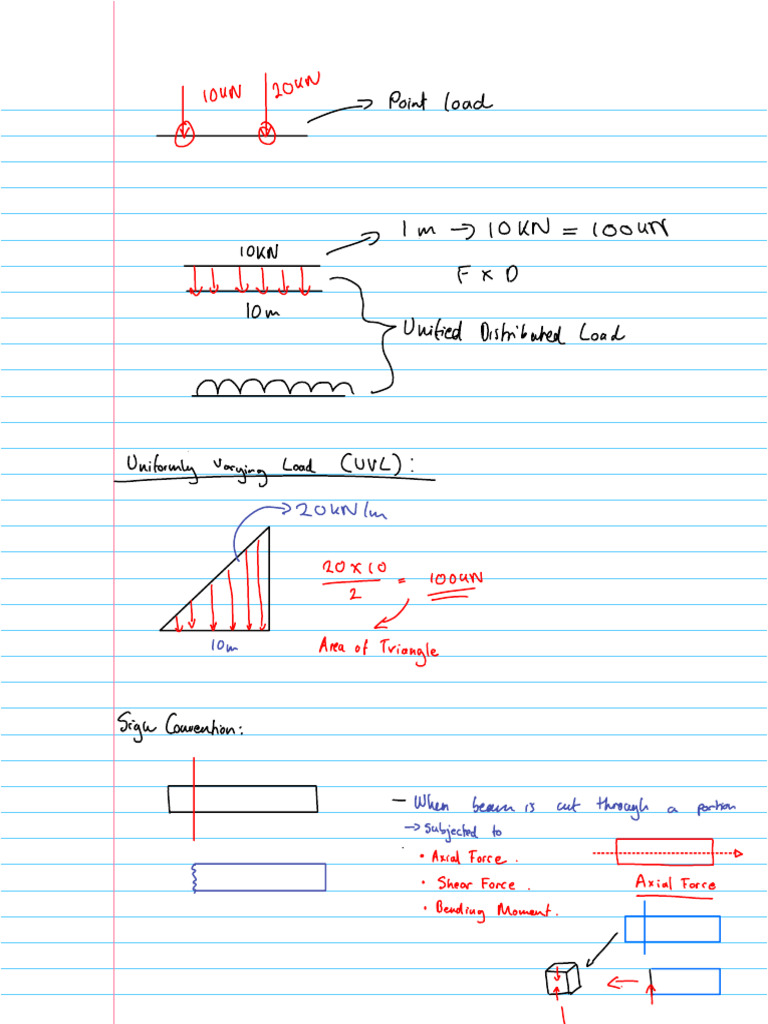 10KN 20KN
→ Point load
1m → 10KN = 100KN
10KN
F x D
10m
Unified Distributed Load
Uniformly varying Load (UVL):
→ 20KN/m
20 x 10
2
= 100KN
10m
Area of Triangle
Sign Convention:
- When beam is cut through a portion
→ Subjected to
• Axial Force.
• Shear Force.
• Bending Moment.
Axial Force